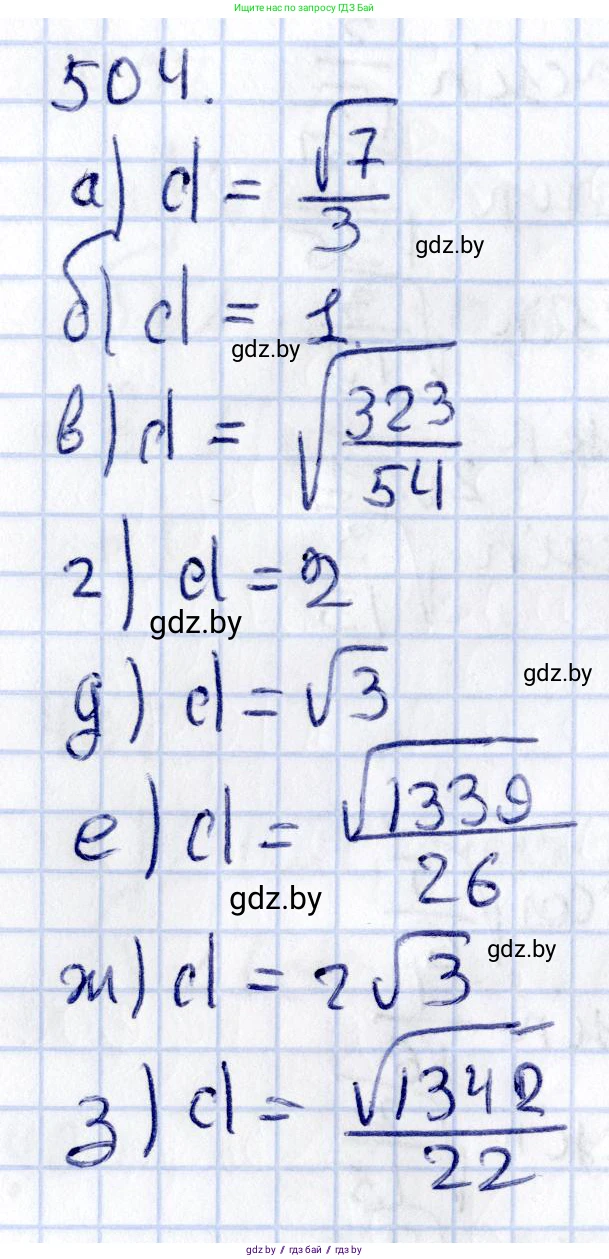 Ищите нас по запросу ГДЗ Бай
504.
а) d = √7/3
gdz.by
б) d = 1.
gdz.by
в) d = √(323/54)
г) d = 2
gdz.by
д) d = √3
gdz.by
е) d = √1339/26
gdz.by
ж) d = 2√3
gdz.by
з) d = √1342/22
gdz.by // гдз бай // gdz.by